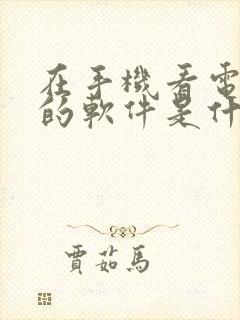 在手機看電
的軟件是什
賈茹馬